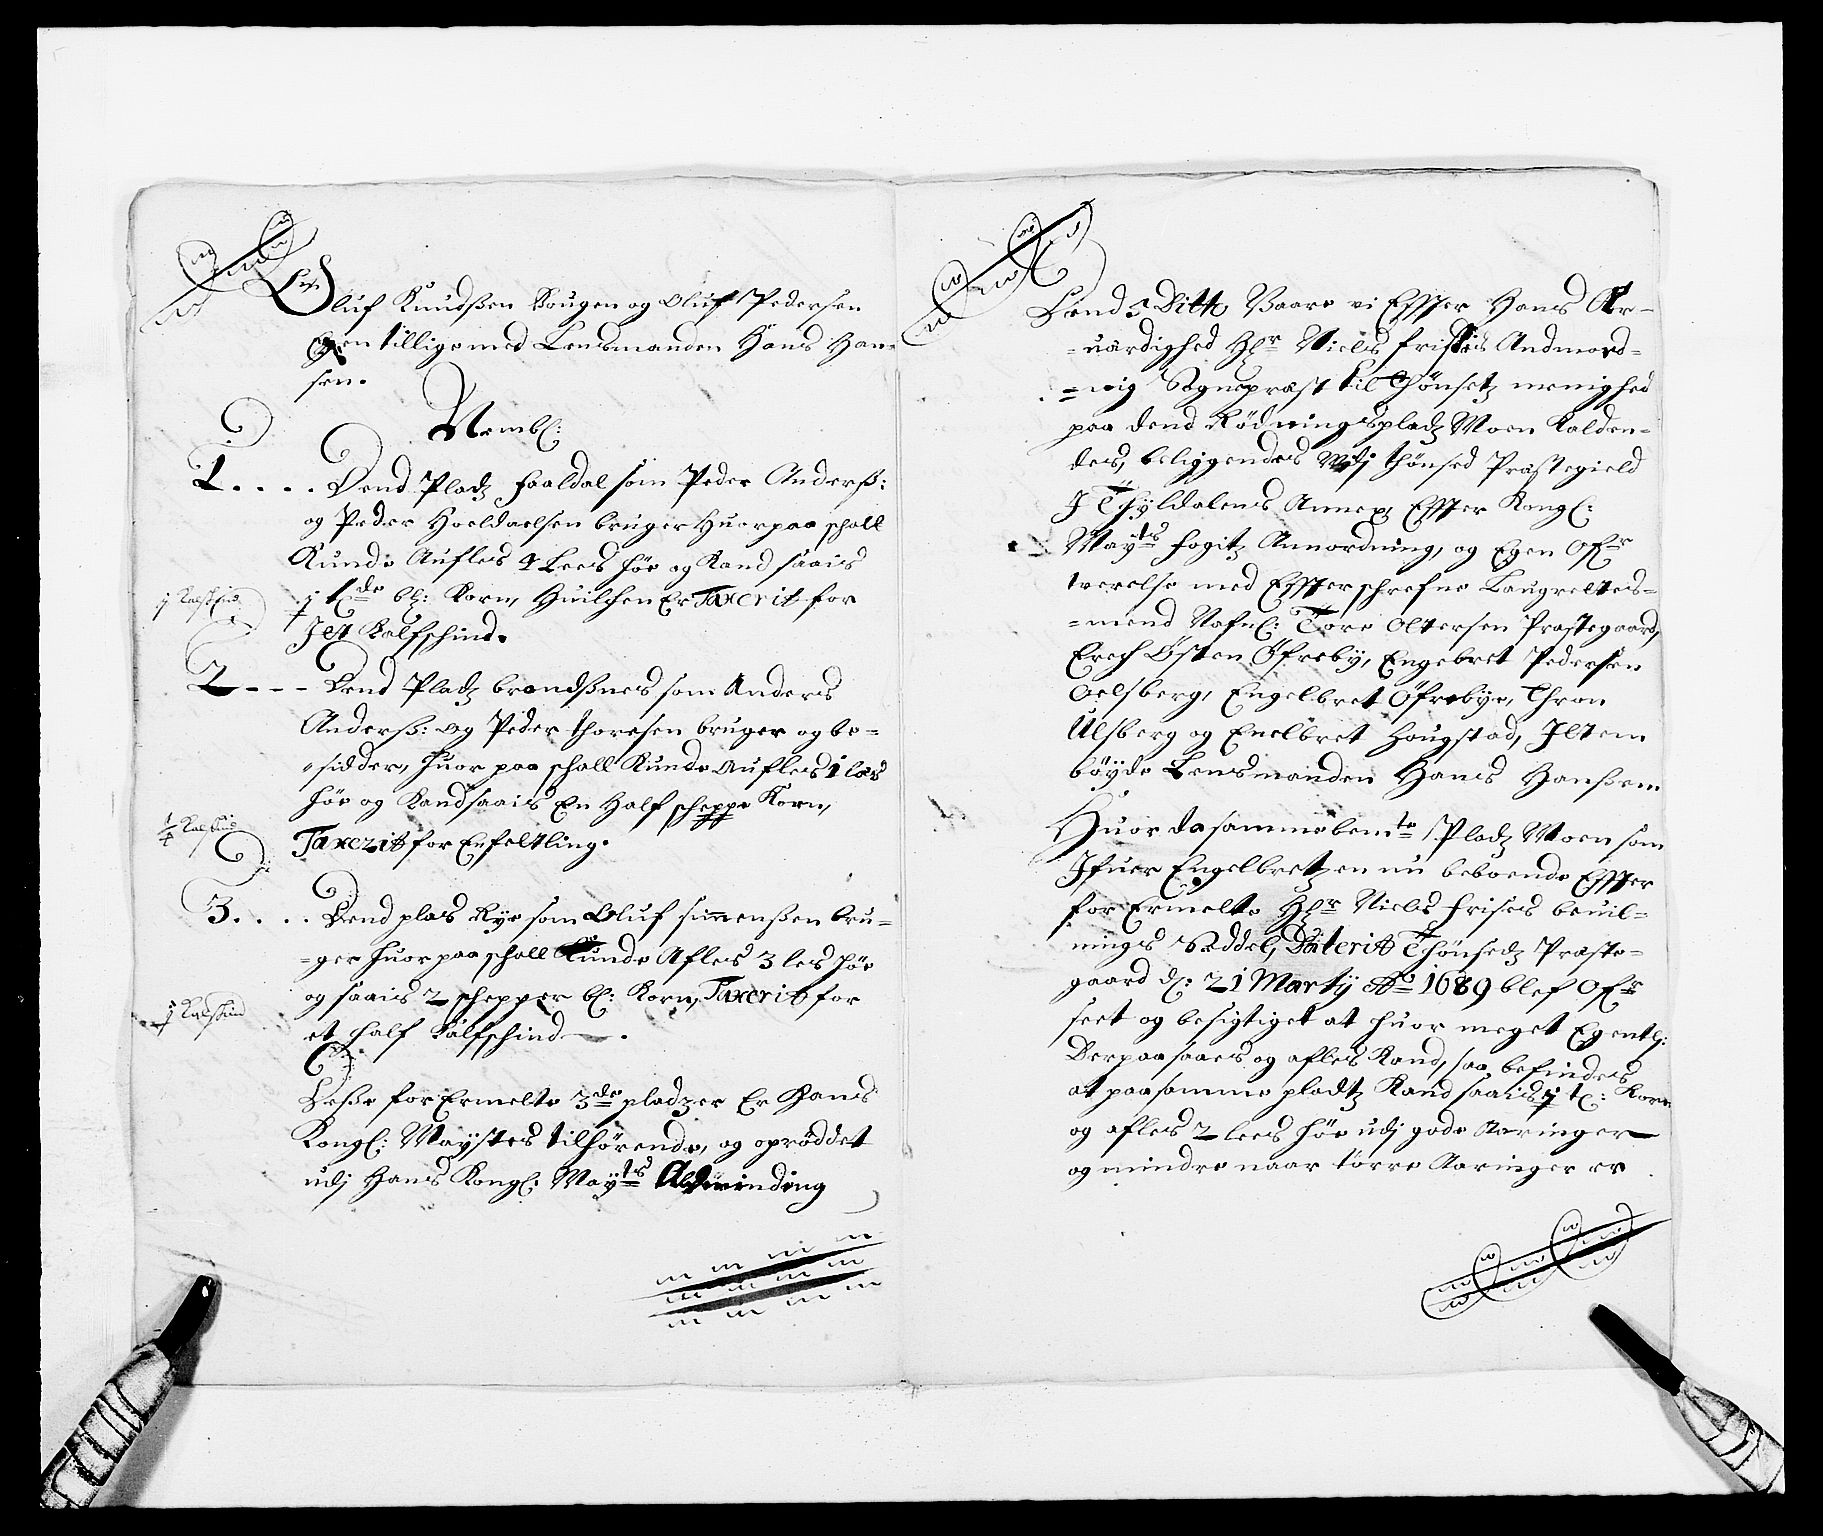 Oluf Knudßen Vougen og Oluf Pedersen
tilligemed Lensmanden Hans Han-
sen.
Nembl:
1. . . . Dend Pladz Faaldal som Peder Anderß:
og Peder Hoeldaelsen bruger Huorpaa schall
Kunde Aufles 4 Lees höe og Kand saais
j t:de bl: Korn, Huilchen Er Taxerit for
j Kalfskind
Jet Kalfschind.
2 - - - Dend Pladz brendßnes som Anders
Anderß: og Peder thoresen bruger og be-
-sidder, huor paa schall Kunde Aufles 1 læs
höe og Kand saais En Half scheppe Korn,
Taxerit for En feltling.
3. . . . Dend plas Rye som Oluf simmenßen bru-
-ger huor paa schall Kunde Afles 3 les höe
og saais 2 schepper bl: Korn, Taxerit for
et half Kalfschind.
Deße for Ermelte 3de pladzer Er Hans
Kongl: Mayestes tilhörende, og oprÿddet
udj Hans Kongl: Mayts Alminding
Dend 5 Ditto Vaare vi Effter Hans Ær-
-uærdighed Hr Niels frisis Andmord-
-nig Sognepræst til Thönsetz menighed
paa dend Rödningspladz Moen Kalden-
des, beliggendes udj thönsed Præstegield
J Thÿldalens Annex, Effter Kongl:
Mayts fogitz Annordning, og Egen Ofr
verelse med Effterschrefne Laugrettes-
-mend Nafnl: Tore Oltersen Præstegaard,
Erech Östen Öfreby, Engebret Pedersen
Oelsberg, Engelbret Öfrebye, Thron
Ulsberg og Enelbret Hougstad, Jtem
böyde Lensmanden Hans Hanßen
Huor da samme bemte Pladz Moen som
Jfuer Engelbretzen nu beboende Effter
for Ermelte Hr Niels Frises beuil-
nings Seddel, Daterit Thönsedz Præste-
gaard d: 21 Marty Ao 1689 blef Ofr
seet og besigtiget at huor meget Egentl:
Derpaa saaes og afles Kand, saa befindes
at paa samme pladtz Kand saais j t: Korn
og afles 2 lees höe udj gode Aaringer
og mindre naar törre Aaringer er